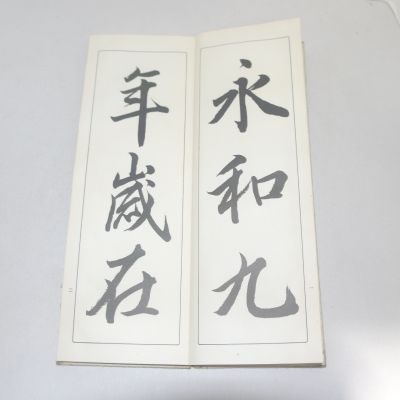 永和九
年歳在